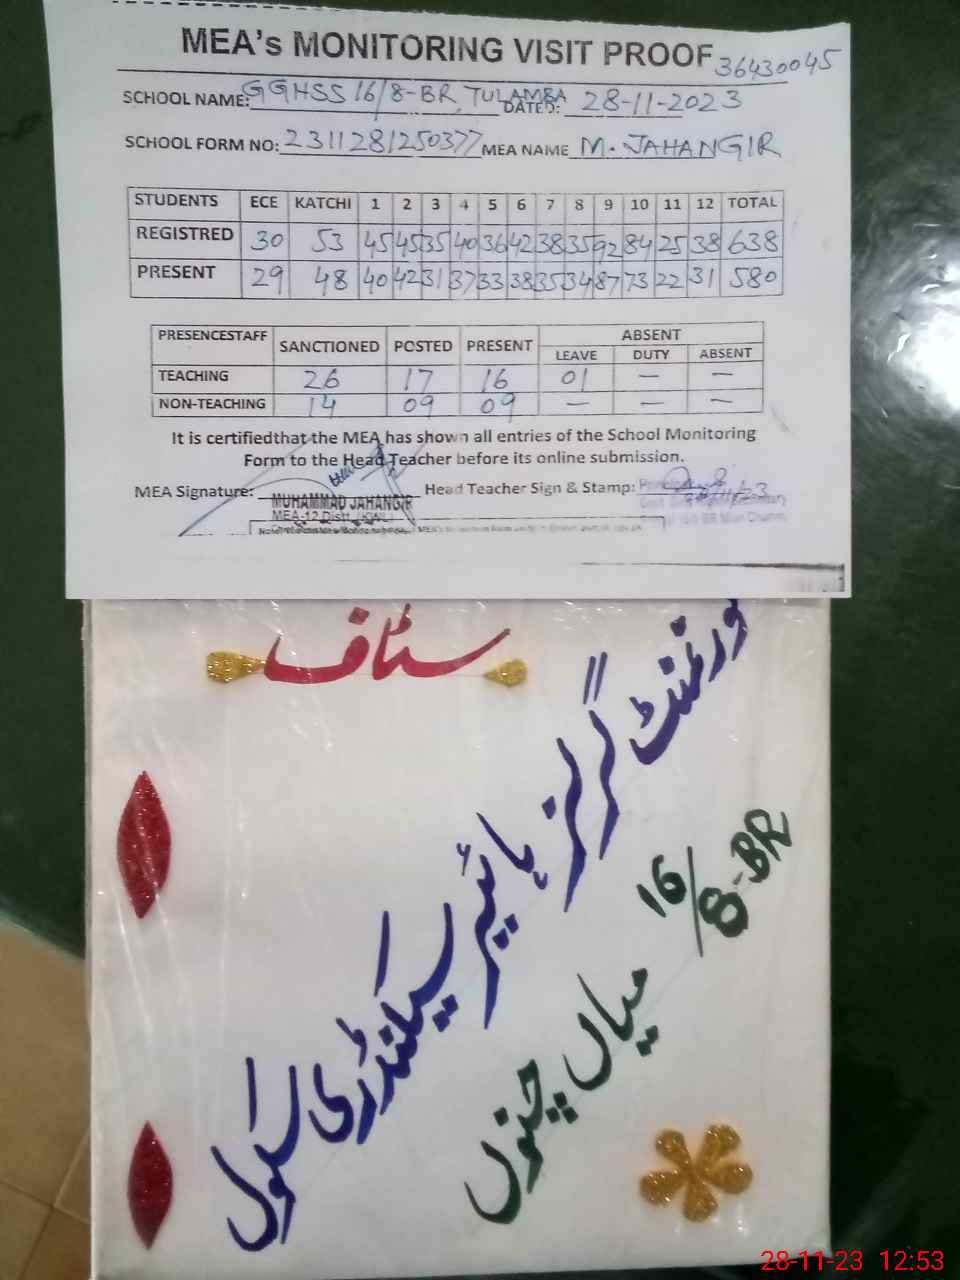 MEA's MONITORING VISIT PROOF 36430045
SCHOOL NAME: GGHSS 16/8-BR, TULAMBA DATED: 28-11-2023
SCHOOL FORM NO: 2311281250377 MEA NAME M. JAHANGIR
STUDENTS ECE KATCHI 1 2 3 4 5 6 7 8 9 10 11 12 TOTAL
REGISTRED 30 53 45 45 35 40 36 42 38 35 92 84 25 38 638
PRESENT 29 48 40 42 31 37 33 38 35 34 87 73 22 31 580
PRESENCESTAFF SANCTIONED POSTED PRESENT ABSENT
LEAVE DUTY ABSENT
TEACHING 26 17 16 01 — —
NON-TEACHING 14 09 09 — — —
It is certifiedthat the MEA has shown all entries of the School Monitoring
Form to the Head Teacher before its online submission.
MEA Signature: Head Teacher Sign & Stamp:
MUHAMMAD JAHANGIR
MEA-12 Distt.
سٹاف
گورنمنٹ گرلز ہائیر سیکنڈری سکول
16/8-BR
میاں چنوں
28-11-23 12:53